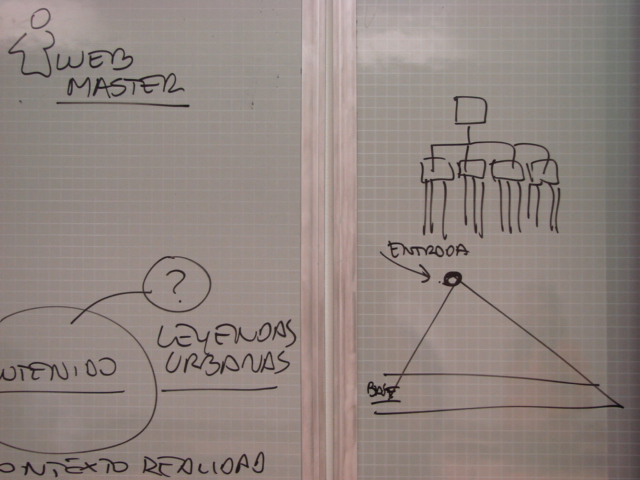 WEB
MASTER
?
LEYENDAS
URBANAS
NTENIDO
ONTEXTO REALIDAD
ENTRADA
BASE